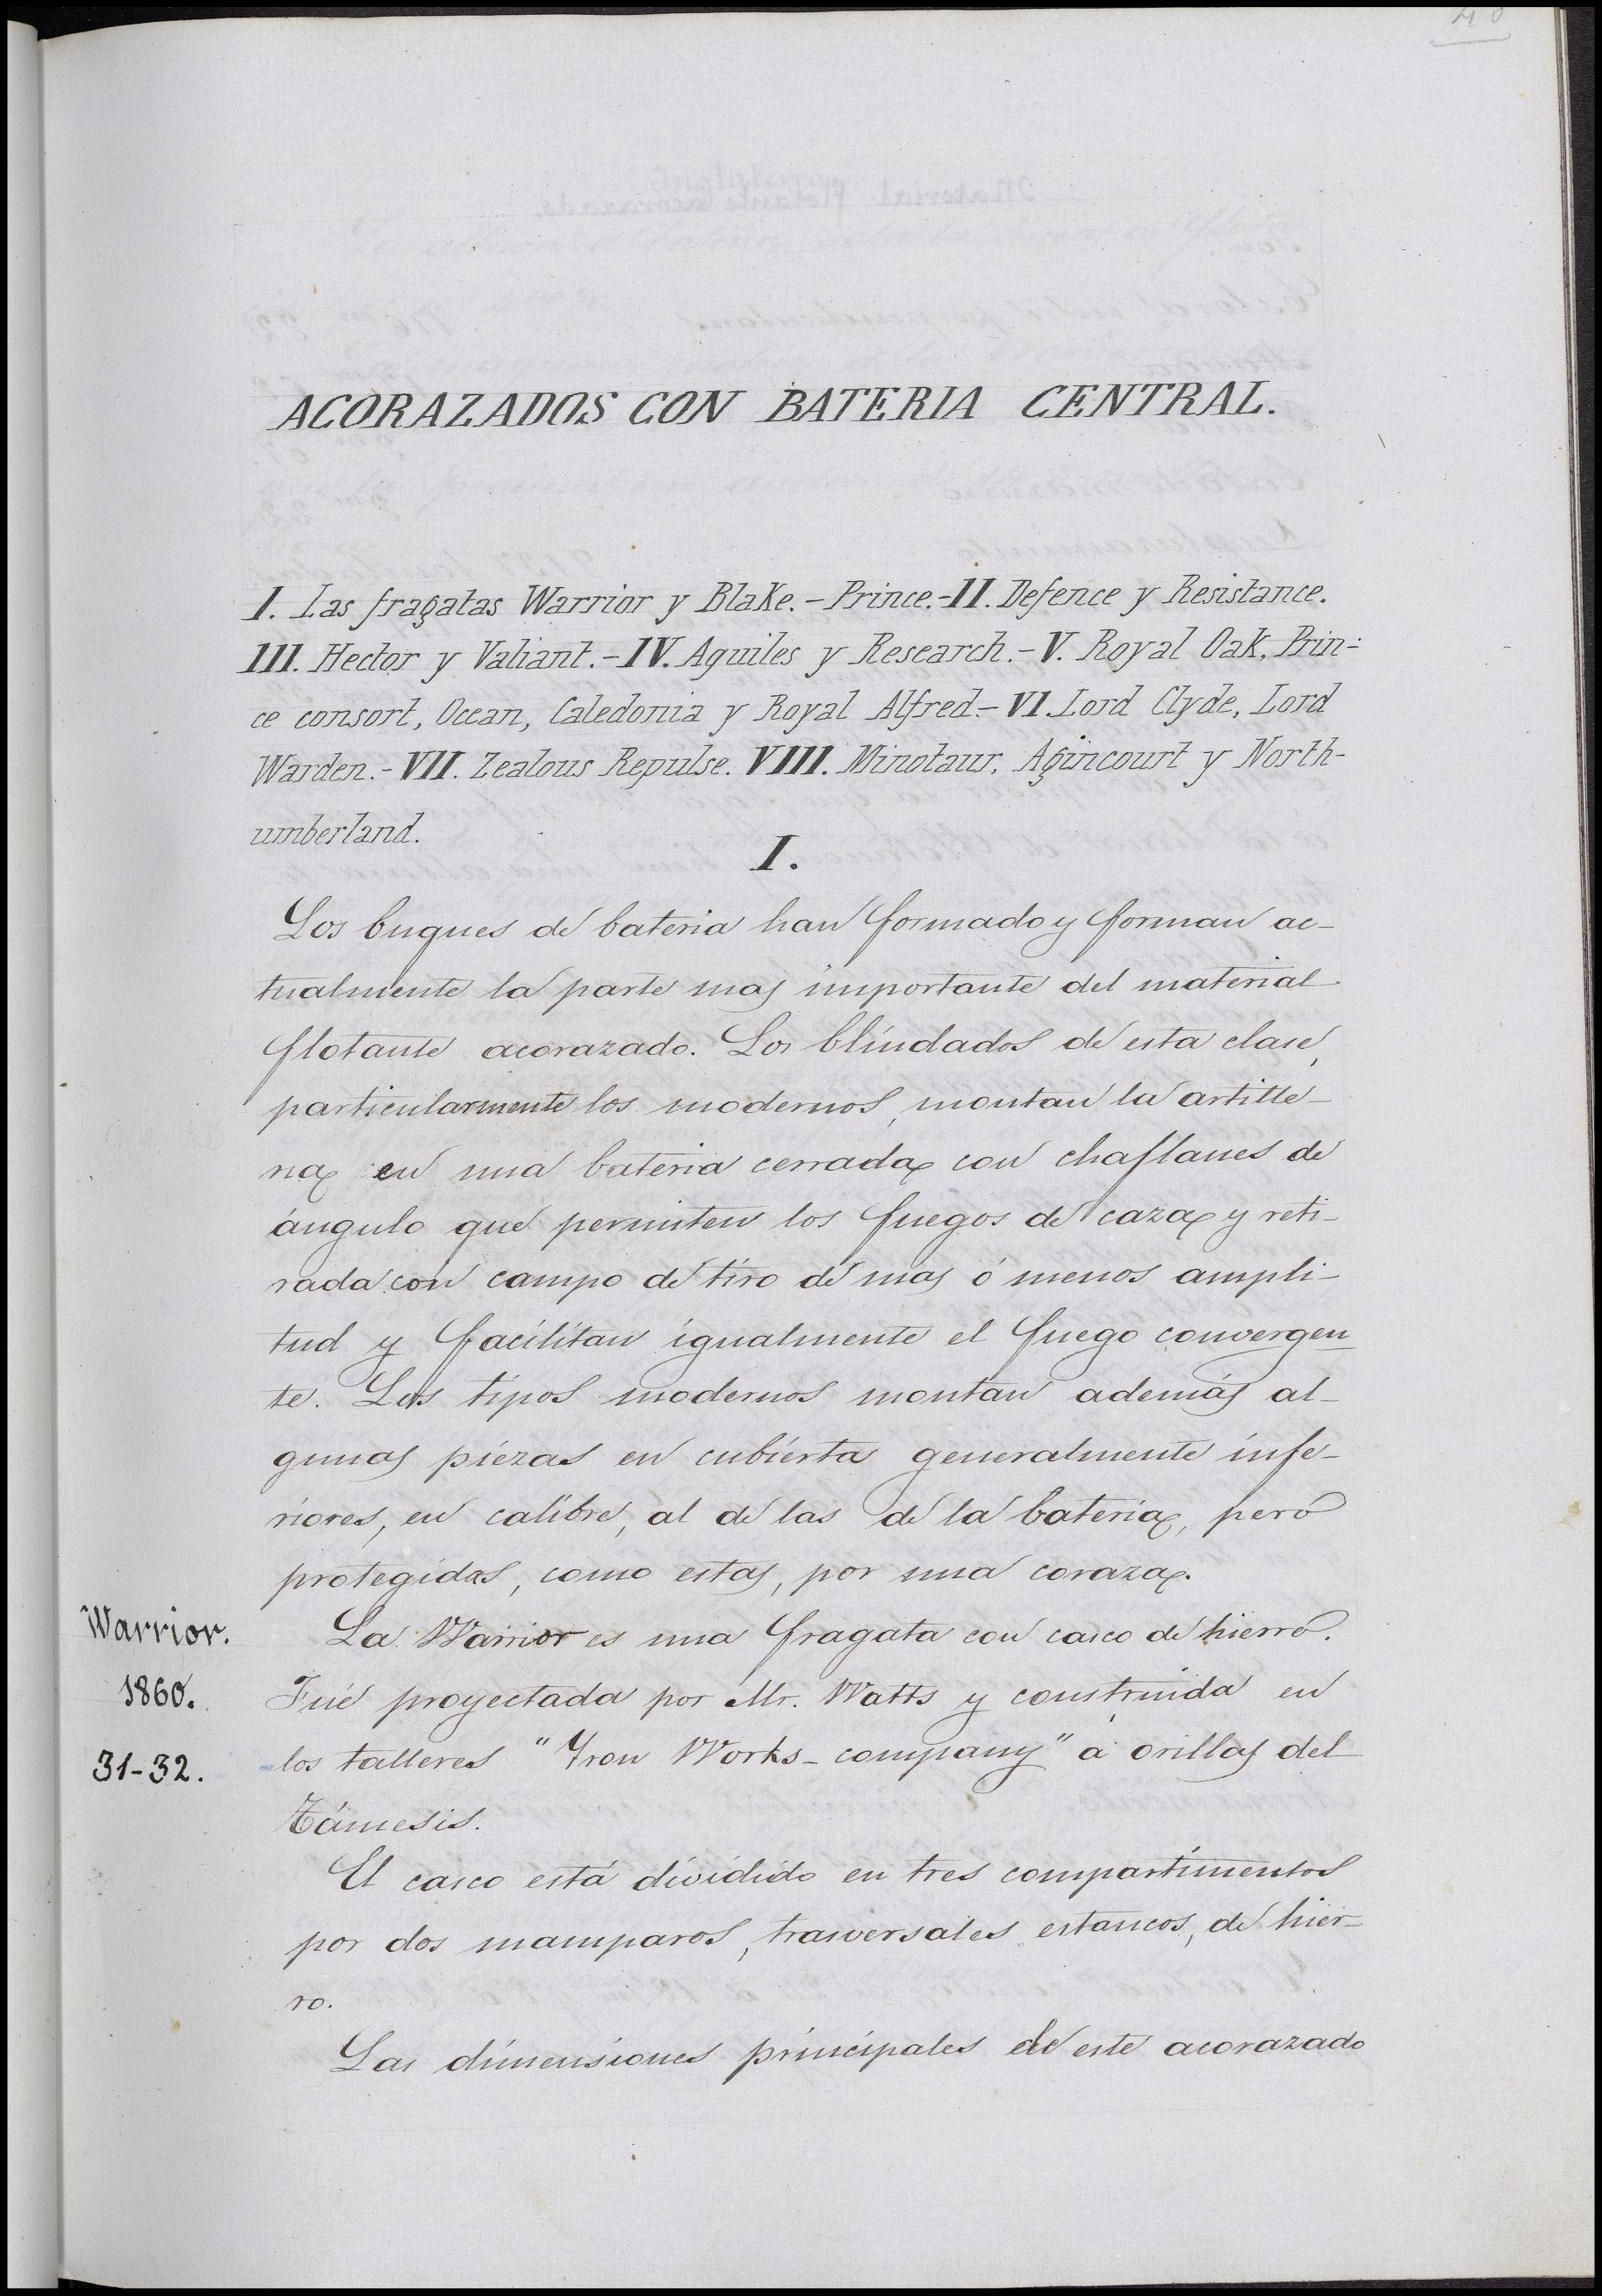 ACORAZADOS CON BATERIA CENTRAL.
I. Las fragatas Warrior y Blake.-Prince.-II. Defence y Resistance.
III. Hector y Valiant.-IV. Aquiles y Research.-V. Royal Oak, Prin-
ce consort, Ocean, Caledonia y Royal Alfred.-VI. Lord Clyde, Lord
Warden.-VII. Zealous Repulse. VIII. Minotaur, Agincourt y North-
umberland.
I.
Los buques de bateria han formado y forman ac-
tualmente la parte mas importante del material
flotante acorazado. Los blindados de esta clase,
particularmente los modernos, montan la artille-
ria en una bateria cerrada con chaflanes de
ángulo que permiten los fuegos de caza y reti-
rada con campo de tiro de mas ó menos ampli-
tud y facilitan igualmente el fuego convergen
te. Los tipos modernos montan además al-
gunas piezas en cubierta generalmente infe-
riores, en calibre, al de las de la bateria, pero
protegidas, como estas, por una coraza.
Warrior.
1860.
31-32.
La Warrior es una fragata con casco de hierro.
Fué proyectada por Mr. Watts y construida en
los talleres "Yron Works-company" á orillas del
Támesis.
El casco está dividido en tres compartimentos
por dos mamparos, trasversales estancos, de hier-
ro.
Las dimensiones principales de este acorazado